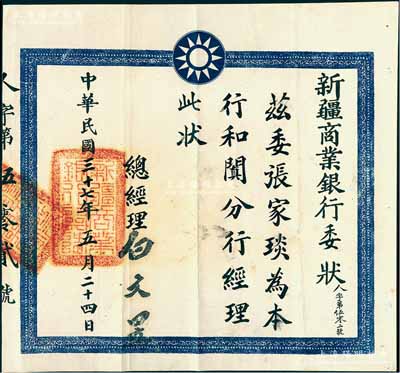 新疆商業銀行委狀
人字第伍零二號
茲委張家琰為本
行和闐分行經理
此狀
總經理
中華民國三十六年五月二十四日
人字第五零貳號